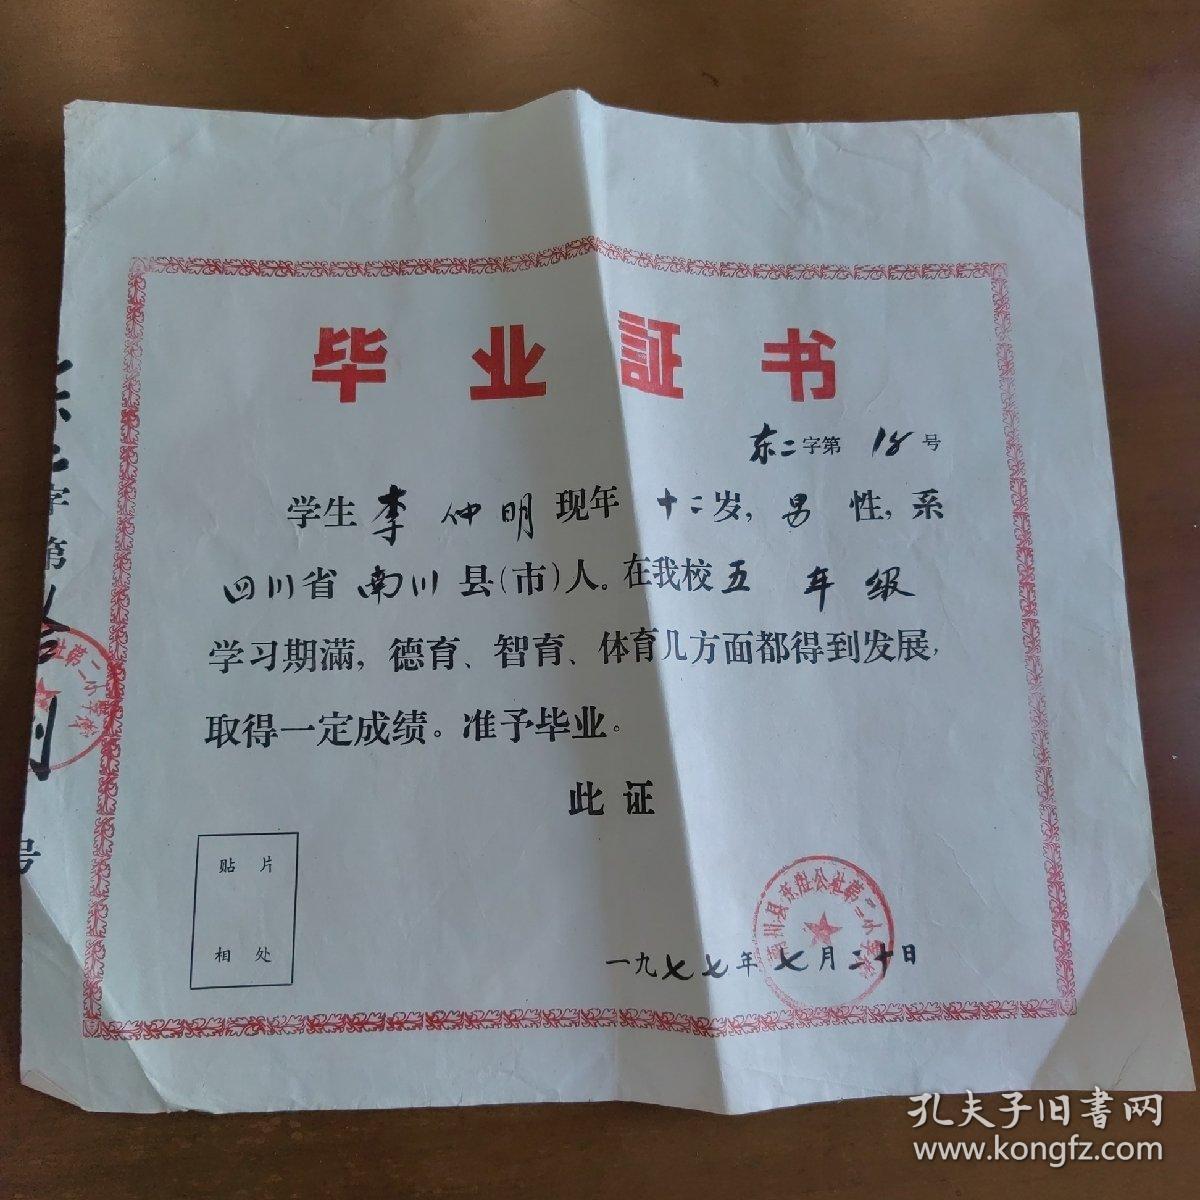 毕业证书
东二字第18号
学生李仲明现年十二岁,男性,系
四川省南川县(市)人。在我校五年级
学习期满,德育、智育、体育几方面都得到发展,
取得一定成绩。准予毕业。
此证
贴片
相处
南川县东胜公社第二小学校
一九七七年七月二十日
东二字第拾捌号
社第二小学校
孔夫子旧書网
www.kongfz.com